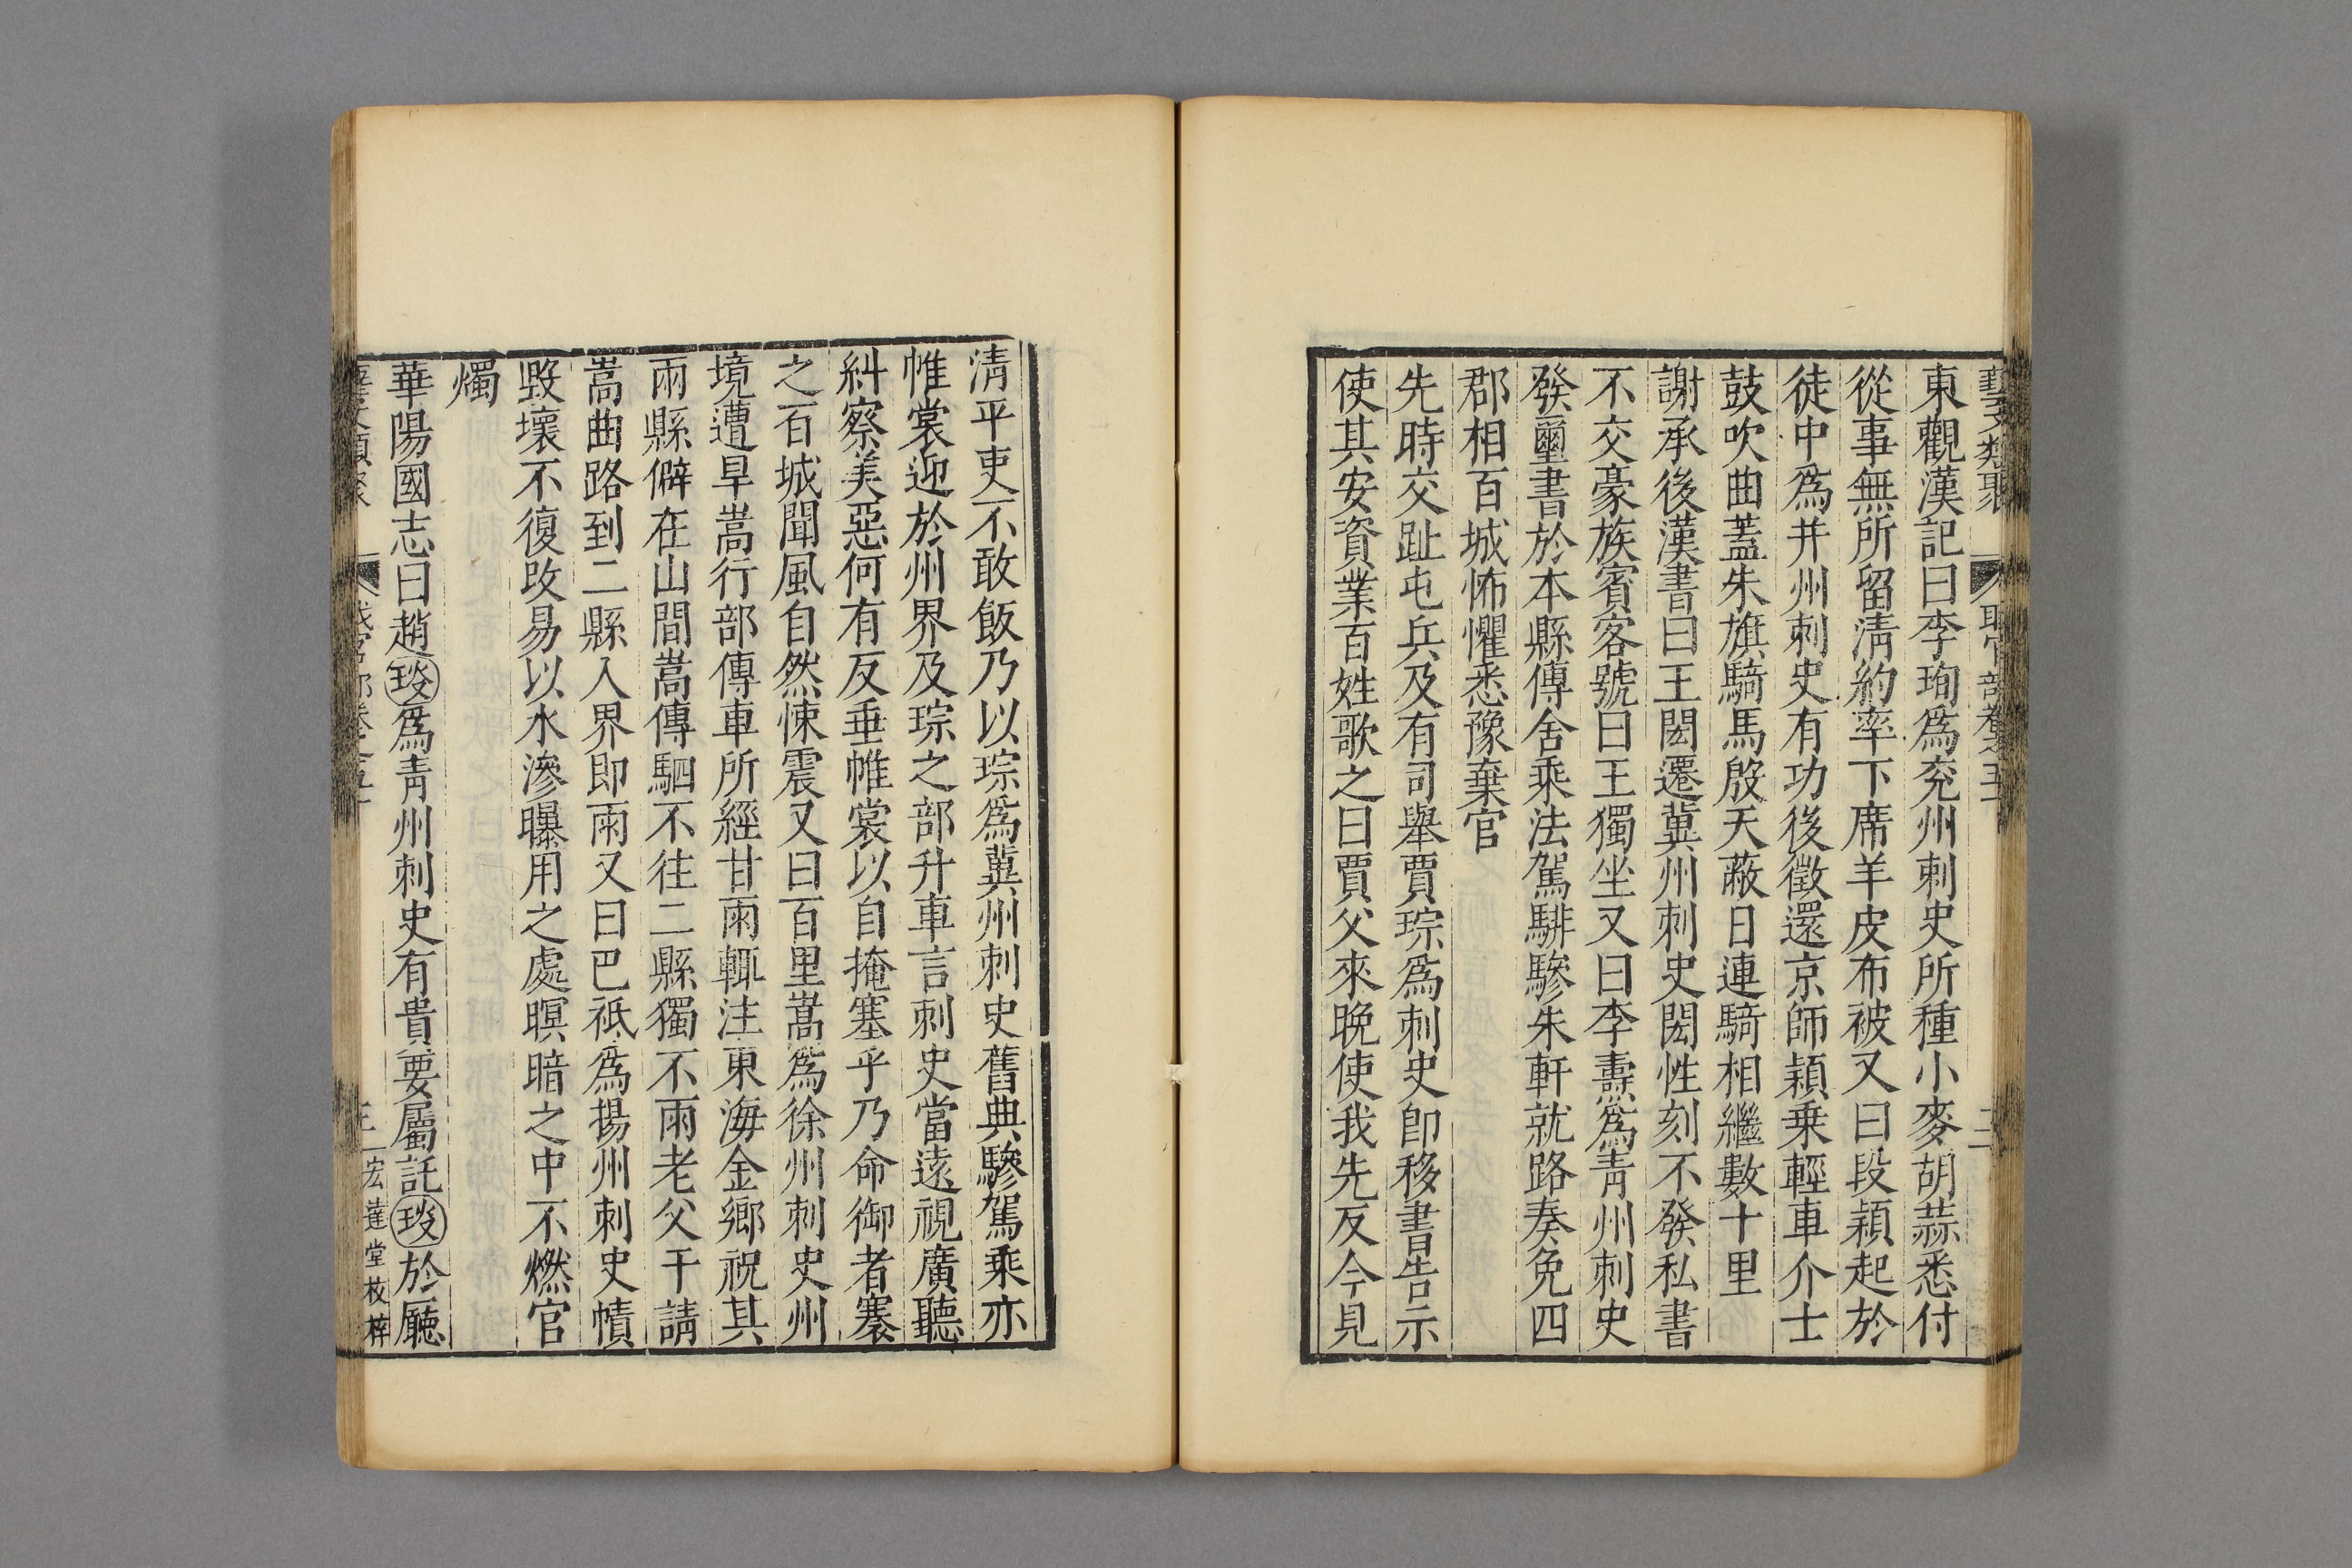 藝文類聚 職官部卷之五十 二
東觀漢記曰李珣爲兖州刺史所種小麥胡蒜悉付
從事無所留清約率下席羊皮布被又曰段熲起於
徒中爲并州刺史有功後徵還京師熲乗輕車介士
鼓吹曲蓋朱旗騎馬殷天蔽日連騎相繼數十里
謝承後漢書曰王閎遷冀州刺史閎性刻不發私書
不交豪族賓客號曰王獨坐又曰李壽爲青州刺史
發璽書於本縣傳舍乘法駕騑驂朱軒就路奏免四
郡相百城怖懼悉豫棄官
先時交趾屯兵及有司舉賈琮爲刺史卽移書告示
使其安資業百姓歌之曰賈父來晚使我先反今見
清平吏不敢飯乃以琮爲冀州刺史舊典驂駕乘亦
帷裳迎於州界及琮之部升車言刺史當遠視廣聽
糾察美惡何有反垂帷裳以自掩塞乎乃命御者褰
之百城聞風自然悚震又曰百里嵩爲徐州刺史州
境遭旱嵩行部傳車所經甘雨輒注東海金鄉祝其
兩縣僻在山間嵩傳駟不往二縣獨不雨老父干請
嵩曲路到二縣入界即雨又曰巴祇爲揚州刺史幘
毀壞不復改易以水滲曝用之處暝暗之中不燃官
燭
華陽國志曰趙琰爲青州刺史有貴要屬託琰於廳
三 宏達堂校梓